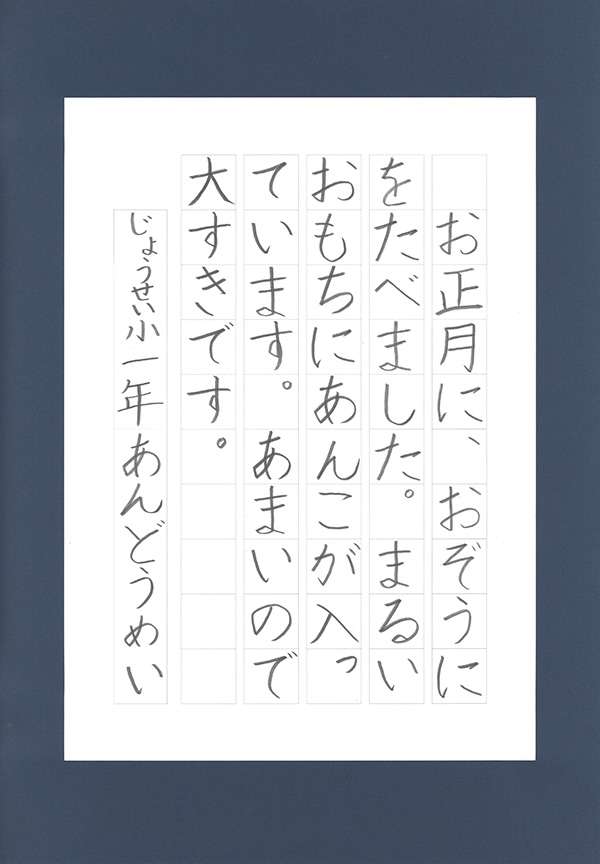 お正月に、おぞうに
をたべました。まるい
おもちにあんこが入っ
ています。あまいので
大すきです。
じょうせい小一年あんどうめい